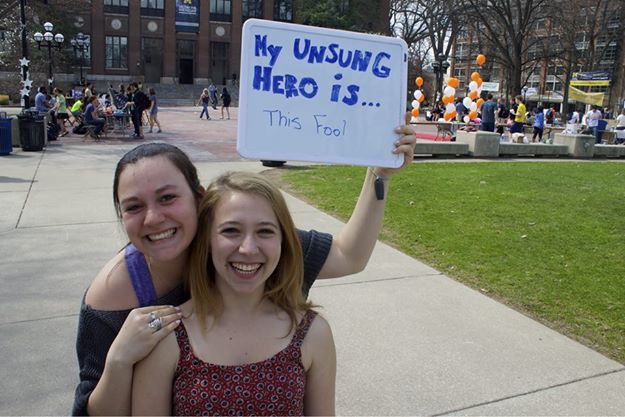 My UNSUNG
HERO is...
This Fool